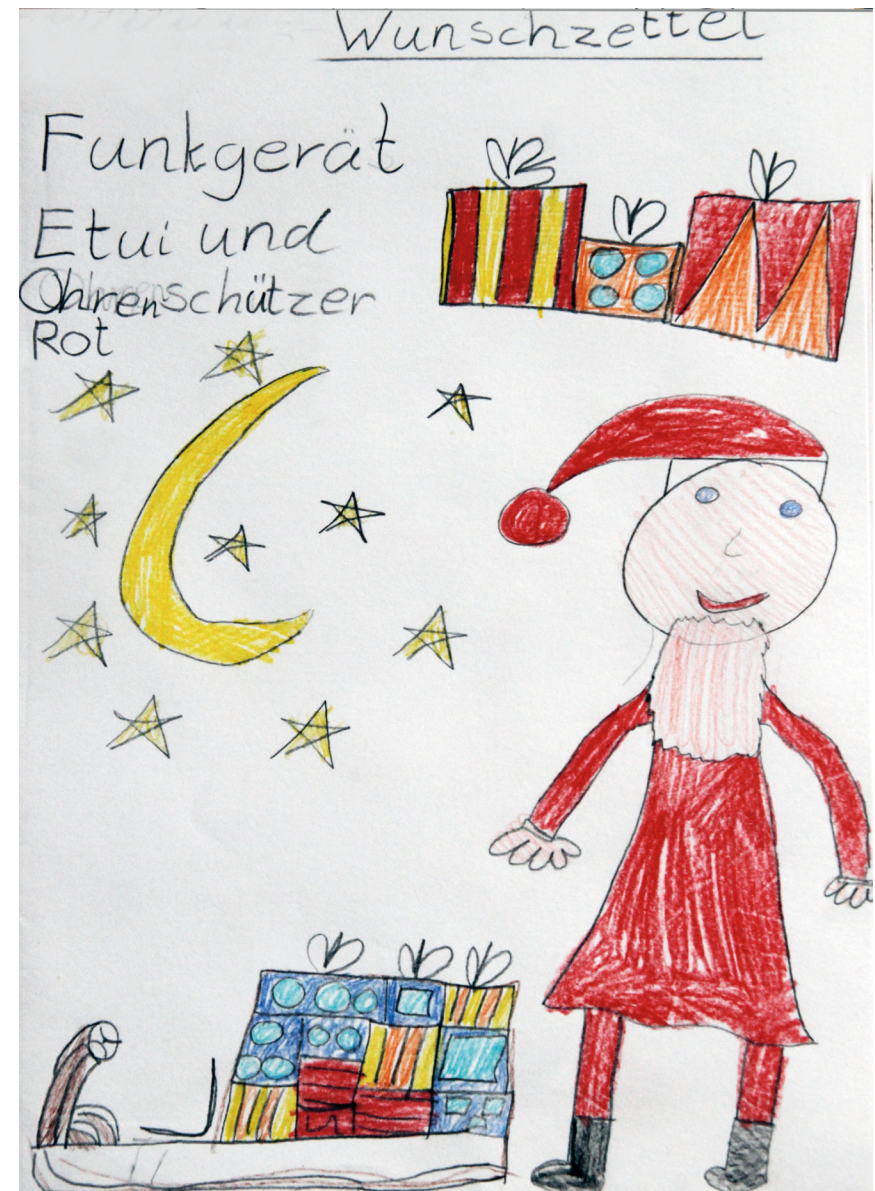 Wunschzettel
Funkgerät
Etui und
Ohrenschützer
Rot